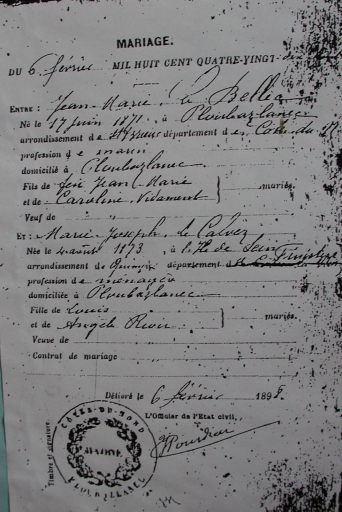 MARIAGE.
DU 6 février MIL HUIT CENT QUATRE-VINGT-
ENTRE : Jean-Marie, Le Bellec
Né le 17 juin 1871, à Ploubazlanec
arrondissement de St Brieuc département des Côtes du N
profession de marin
domicilié à Ploubazlanec
Fils de feu Jean Marie
et de Caroline Vidament mariés.
Veuf de "
ET : Marie-Joseph, Le Calvez
Née le 4 août 1873, à l'Ile de Sein
arrondissement de Quimper département du Finistère
profession de ménagère
domiciliée à Ploubazlanec
Fille de Louis
et de Angèle Riou mariés.
Veuve de
- Contrat de mariage
Délivré le 6 février 1895
L'Officier de l'État civil,
Timbre et signature.
CÔTES-DU-NORD
MAIRIE
PLOUBAZLANEC